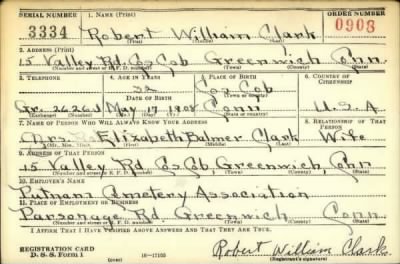 SERIAL NUMBER 1. NAME (Print) ORDER NUMBER
3334 Robert William Clark 0903
(First) (Middle) (Last)
2. ADDRESS (Print)
15 Valley Rd. Cos Cob Greenwich Conn.
(Number and street or R. F. D. number) (Town) (County) (State)
3. TELEPHONE 4. AGE IN YEARS 5. PLACE OF BIRTH 6. COUNTRY OF CITIZENSHIP
32 Cos Cob
(Town or county)
DATE OF BIRTH
Gr. May 17 1908 Conn U.S.A
(Exchange) (Number) (Mo.) (Day) (Yr.) (State or country)
7. NAME OF PERSON WHO WILL ALWAYS KNOW YOUR ADDRESS 8. RELATIONSHIP OF THAT PERSON
Mrs. Elizabeth Balmer Clark Wife
(Mr., Mrs., Miss) (First) (Middle) (Last)
9. ADDRESS OF THAT PERSON
15 Valley Rd Cos Cob, Greenwich, Conn
(Number and street or R. F. D. number) (Town) (County) (State)
10. EMPLOYER'S NAME
Putnam Cemetery Association
11. PLACE OF EMPLOYMENT OR BUSINESS
Parsonage Rd. Greenwich Conn.
(Number and street or R. F. D. number) (Town) (County) (State)
I AFFIRM THAT I HAVE VERIFIED ABOVE ANSWERS AND THAT THEY ARE TRUE.
REGISTRATION CARD
D. S. S. Form 1 (over) 16-17105 Robert William Clark
(Registrant's signature)